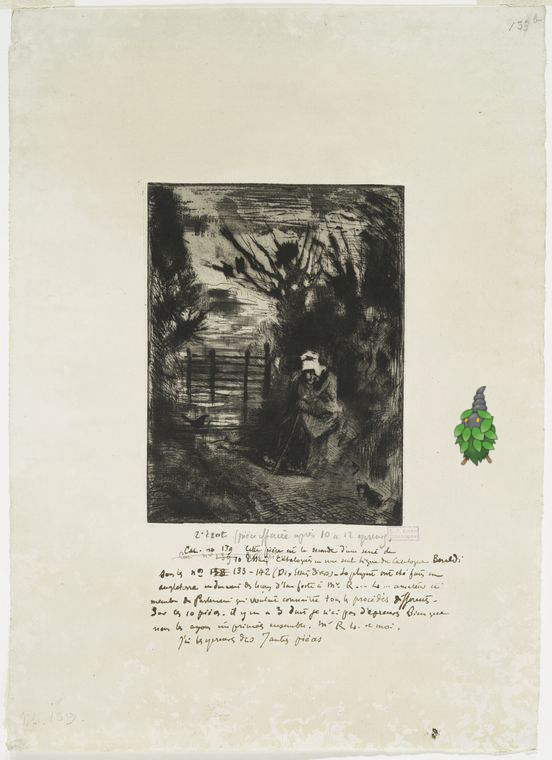 133 b
2e état (pièce effacée après 10 à 12 épreuves)
Cat. no 179 Cette pièce est la seconde d'une serie de
10 Essais Catalogués en une seule ligne du catalogue Beraldi
Sous les nos 133-142 (Dix Essais divers). Les planches ont été faites en
Angleterre en donnant des leçons d'Eau forte à Mr R... H... amateur et
membre du Parlement qui voulait connaitre tous les procédés différents.
Sur les 10 pièces, il y en a 3 dont je n'ai pas d'épreuves Bien que
nous les ayons imprimées ensemble. Mr R. H. et moi.
J'ai les épreuves des 7 autres pièces